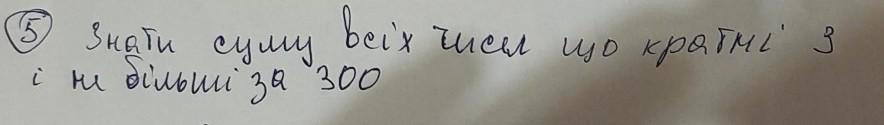 ⑤ Знати суму всіх чисел що кратні 3
і не більші за 300